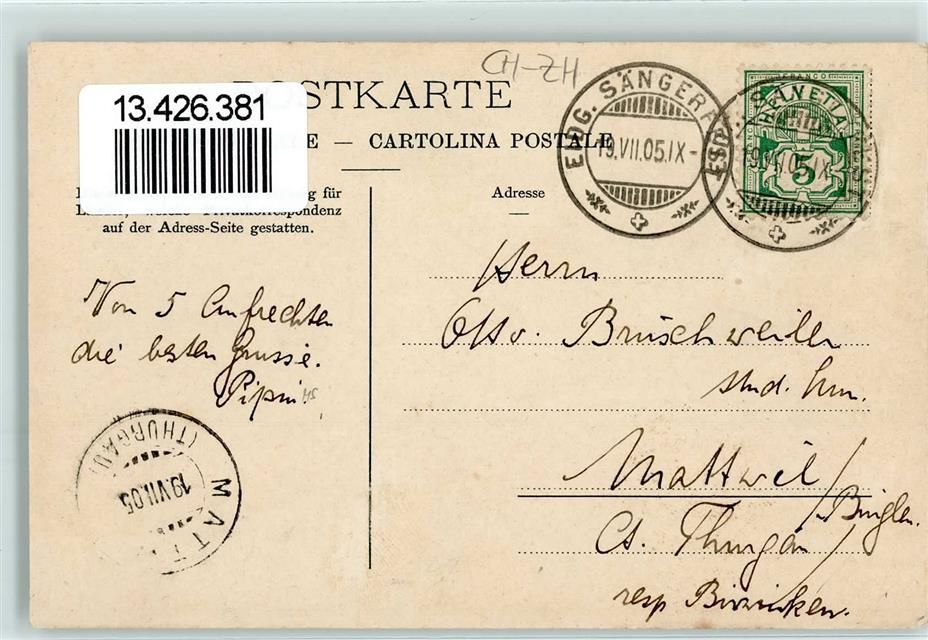 CH-ZH
13.426.381
POSTKARTE
E — CARTOLINA POSTALE
g für
Privatkorrespondenz
auf der Adress-Seite gestatten.
Adresse
EIDG. SÄNGERF
19.VII.05.IX-
FRANCO
HELVETIA
5
Von 5 Aufrechten
die besten Grüsse.
Pipin
Herrn
Otto Brüschweiler
stud. hum.
Mattwil /
Ct. Thurgau /
resp
(THURGAU)
19.VII.05
MATT